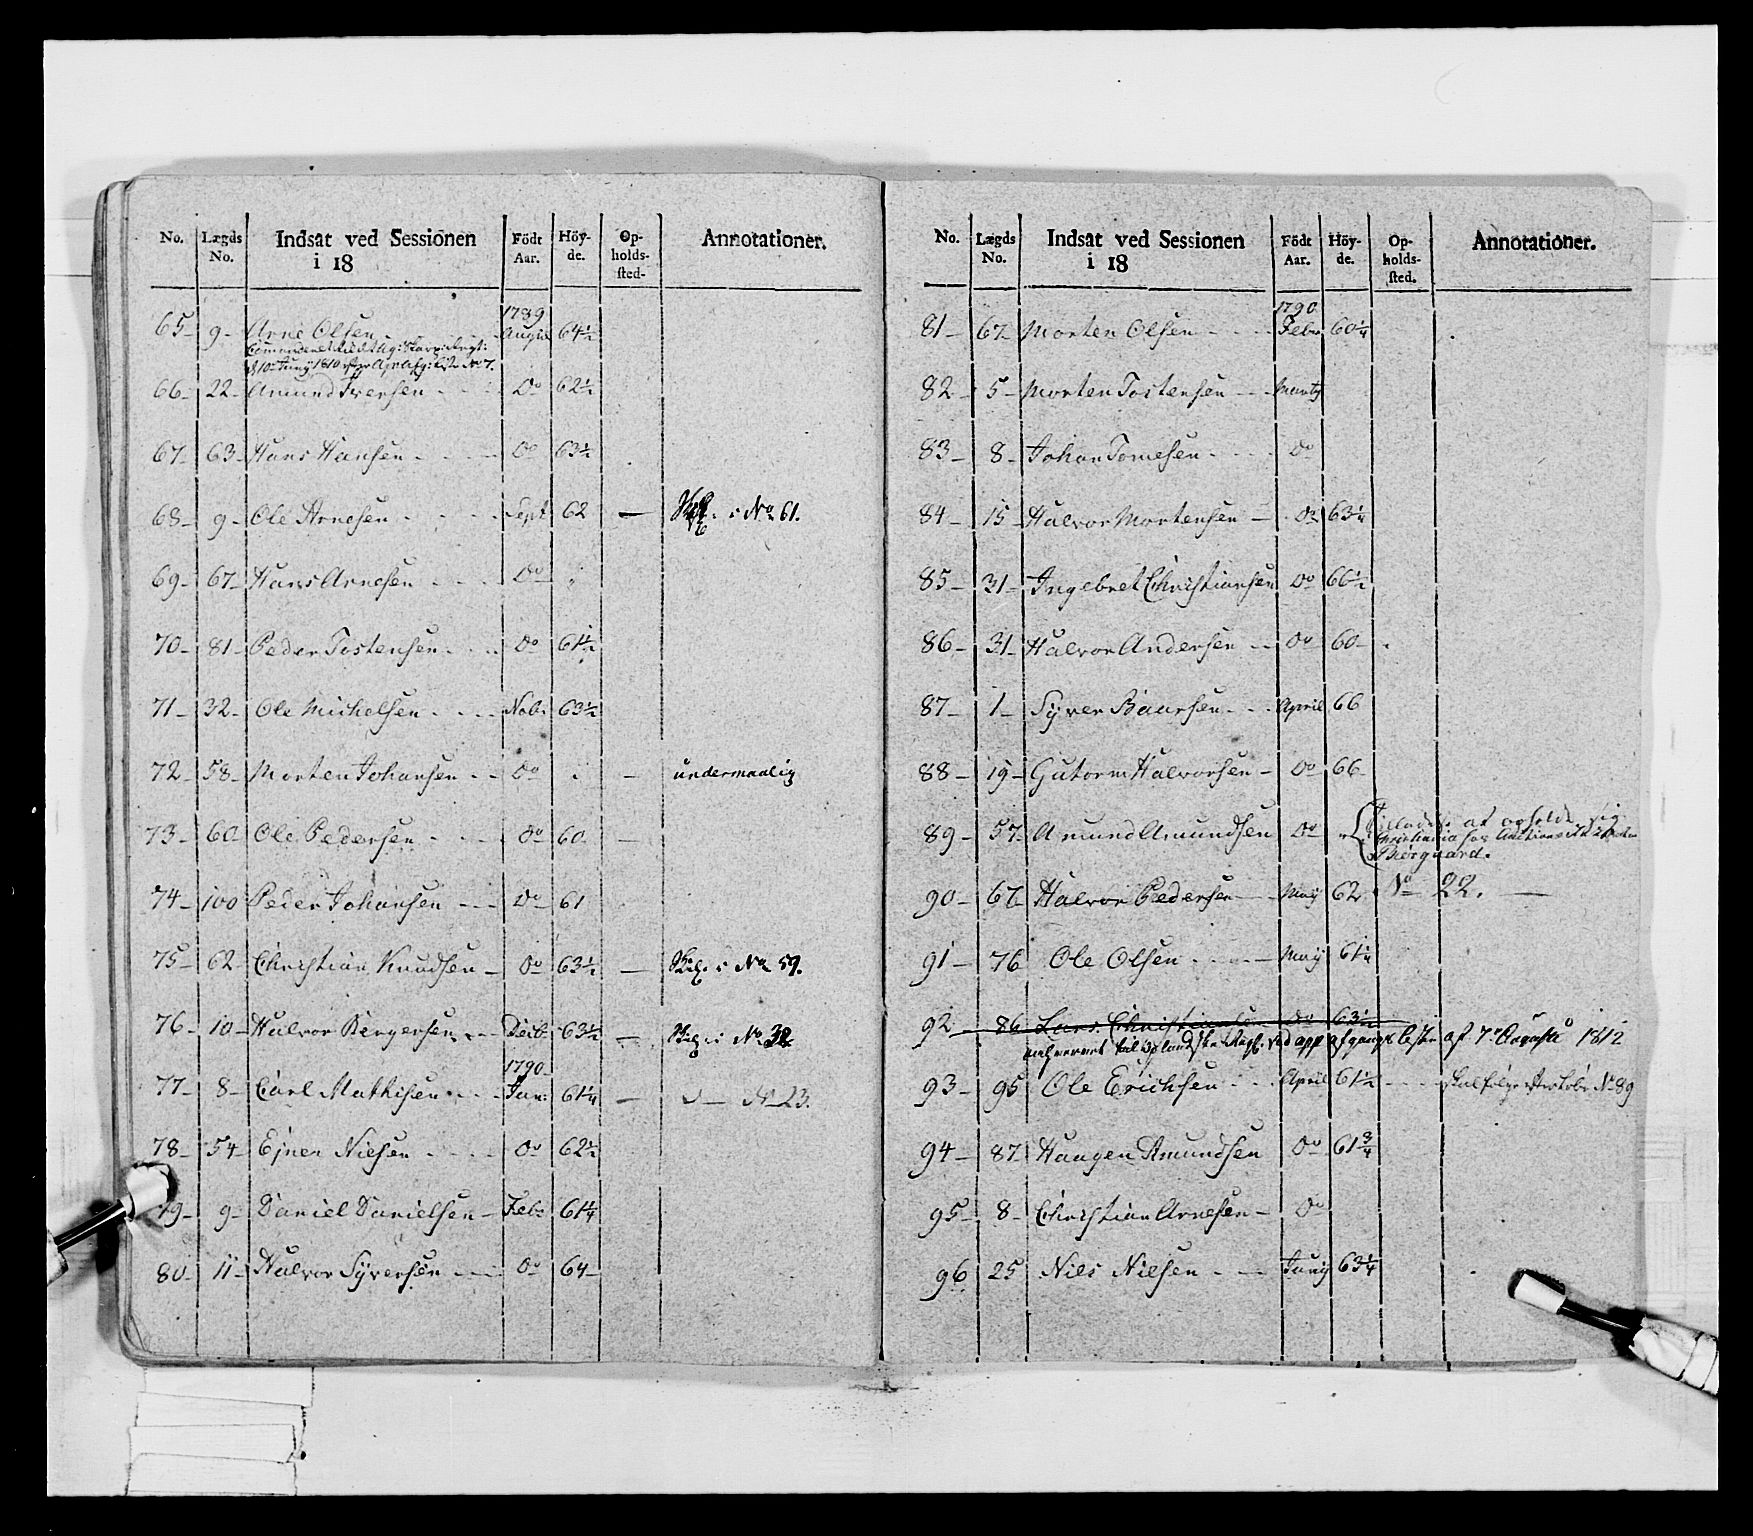 No. Lægds No. Indsat ved Sessionen i 18 Födt Aar. Höyde. Opholdssted. Annotationer.
1789
65 9 Arne Olsen August 64½
66 22 Amund Iversen Do 62½
67 63 Hans Hansen Do 63½
68 9 Ole Arnesen Sept 62 — i No 61.
69 67 Hans Arnesen Do "
70 81 Peder Tostensen Do 61½
71 32 Ole Michelsen Nob: 63½
72 58 Morten Johansen Do — undermaalig
73 60 Ole Pedersen Do 60 —
74 100 Peder Johansen Do 61
75 62 Christian Knudsen Do 63½ — i No 59.
76 10 Halvor Bergersen Decb: 63½ — i No 32
1790
77 8 Carl Mathisen Jan: 61¼ — No 23.
78 54 Ejner Nielsen Do 62½
79 9 Daniel Danielsen Febr 61¼
80 11 Halvor Syversen Do 64
No. Lægds No. Indsat ved Sessionen i 18 Födt Aar. Höyde. Opholdssted. Annotationer.
1790
81 67 Morten Olsen Febr 60¼
82 5 Morten Tostensen Martz
83 8 Johan Tomesen Do
84 15 Halvor Mortensen Do 63¼
85 31 Ingebret Christiansen Do 66½
86 31 Halvor Andersen Do 60
87 1 Syver Baarsen April 66
88 19 Gutorm Halvorsen Do 66
89 57 Amund Amundsen Do " at opholde sig
Christiania hos
Thorgaard.
90 67 Halvor Pedersen May 62 No 22. —
91 76 Ole Olsen May 61¼
92 86 Lars Christiansen Do 63½
til Oplandske Regt. ved app afgangs liste af 7de Augusti 1812
93 95 Ole Erichsen April 61½ skal følge No 89
94 87 Haagen Amundsen Do 61¾
95 8 Christian Arnesen Do
96 25 Niels Nielsen Juny 63¼